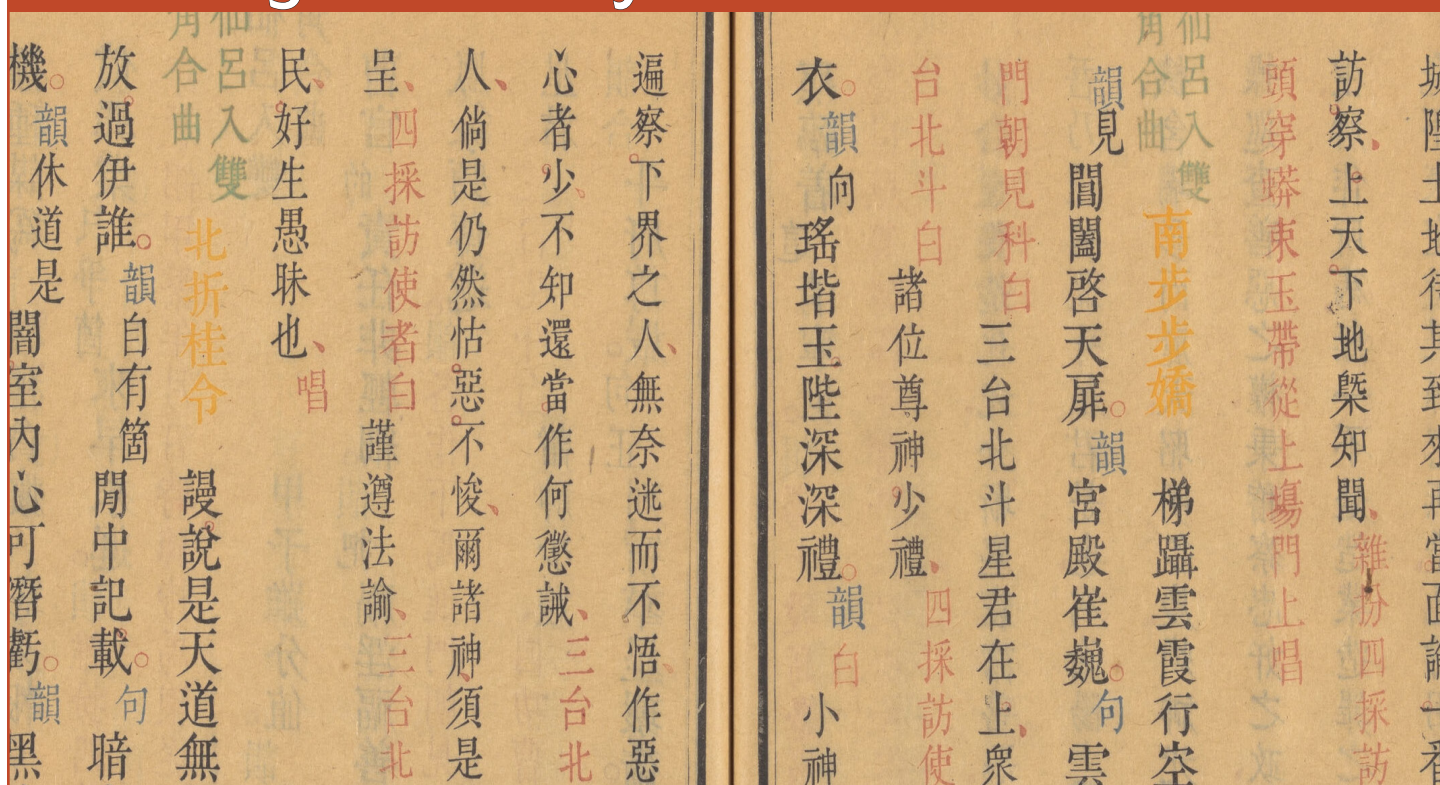 城隍土地待其到來再當面諭一番
訪察上天下地槩知聞雜扮四採訪
頭穿蟒束玉帶從上塲門上唱
仙呂入雙
角合曲
南步步嬌
梯躡雲霞行空
韻見閶闔啓天扉韻宮殿崔巍句雲
門朝見科白三台北斗星君在上衆
台北斗白諸位尊神少禮四採訪使
衣韻向瑤堦玉陛深深禮韻白小神
遍察下界之人無奈迷而不悟作惡
心者少不知還當作何懲誡三台北
人倘是仍然怙惡不悛爾諸神須是
呈四採訪使者白謹遵法諭三台北
民好生愚昧也唱
仙呂入雙
角合曲
北折桂令
謾說是天道無
放過伊誰韻自有箇閒中記載句暗
機韻休道是闇室內心可潛虧韻黑